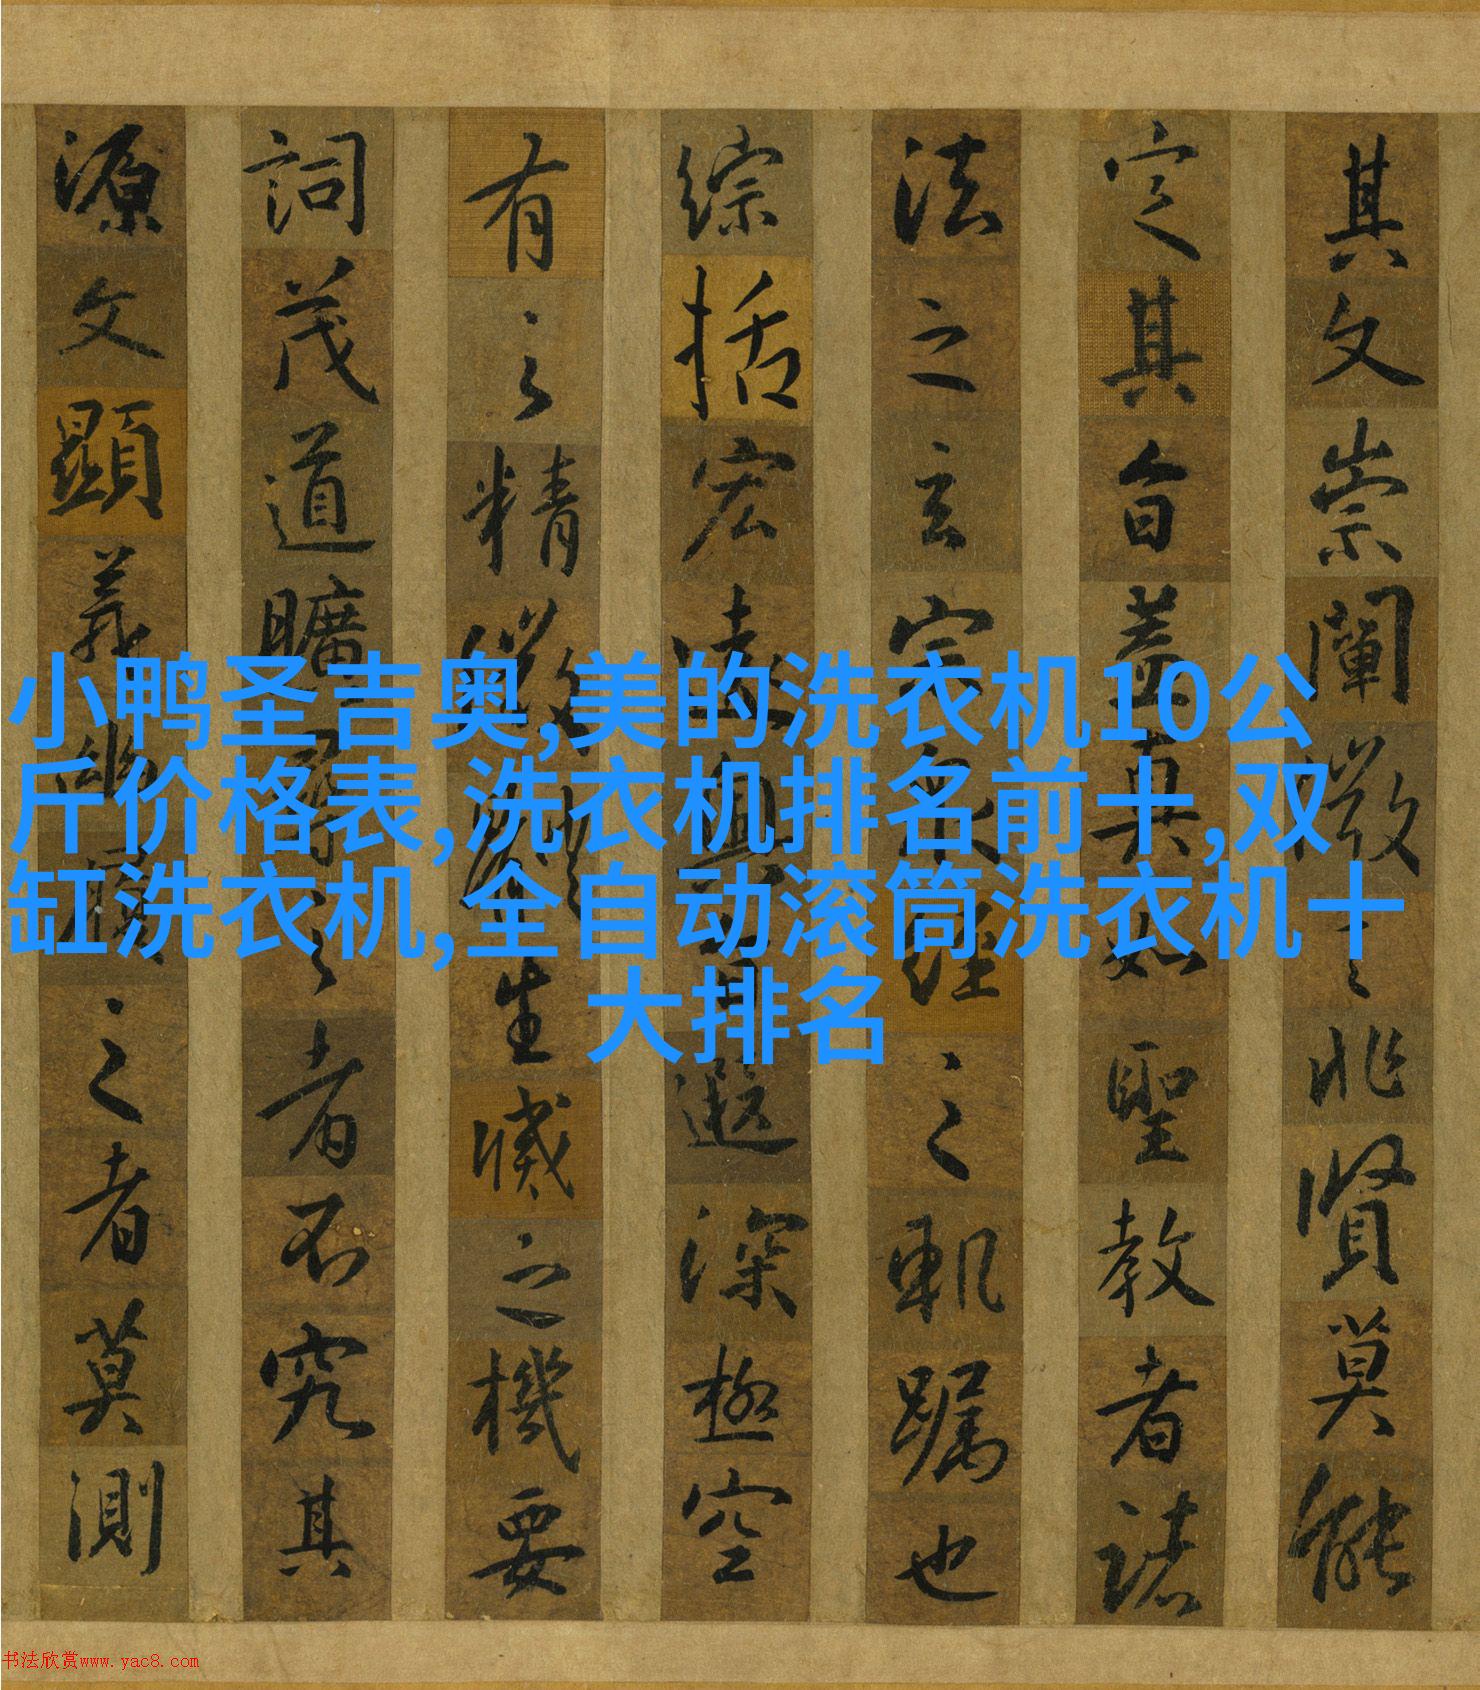 小鸭圣吉奥,美的洗衣机10公
斤价格表,洗衣机排名前十,双
缸洗衣机,全自动滚筒洗衣机十
大排名
其文崇闡微言非賢莫能
定其旨蓋真如聖教者諸
法之玄宗眾經之軌躅也
綜括宏遠奧旨遐深極空
有之精微體生滅之機要
詞茂道曠尋之者不究其
源文顯義幽履之者莫測
书法欣赏www.yac8.com